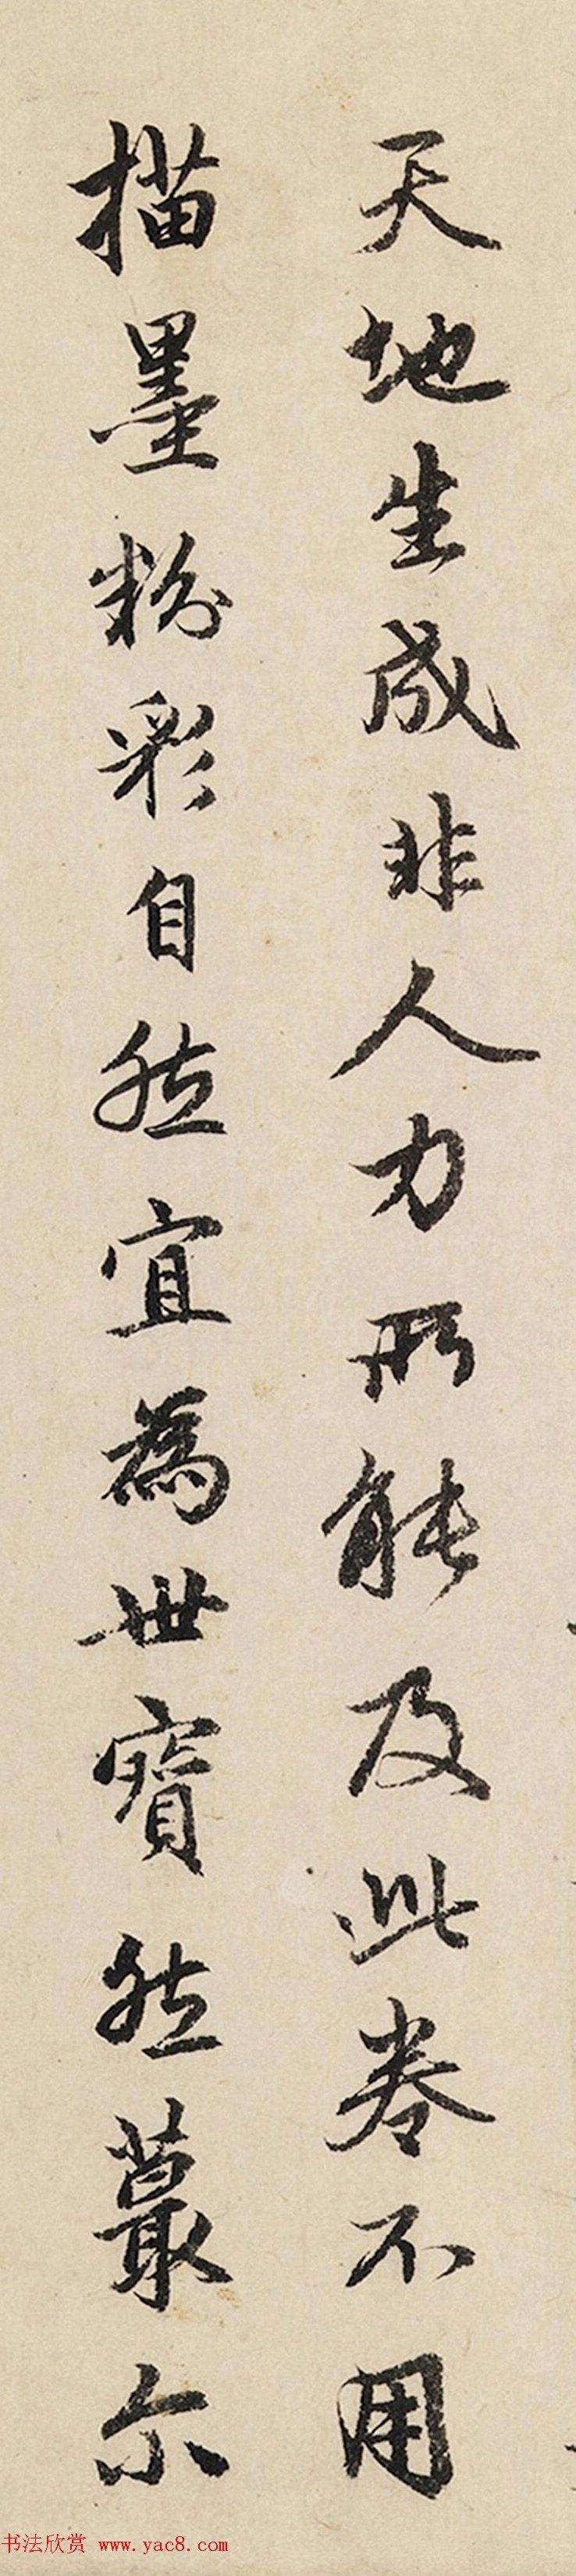 天地生成非人力所能及此卷不用
描墨粉彩自然宜為世寶然蕞尔
书法欣赏 www.yac8.com